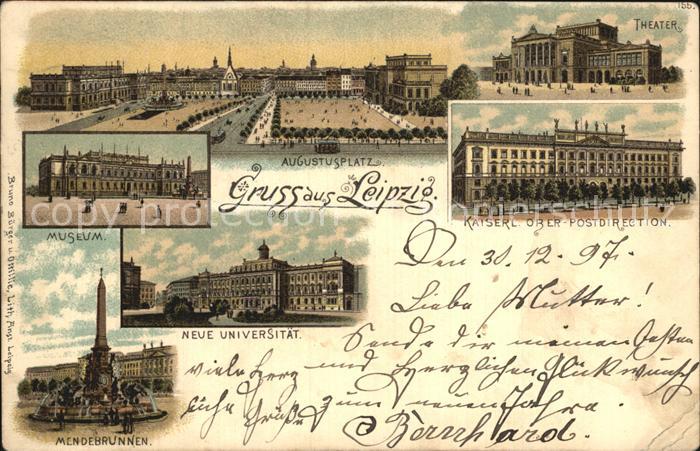 155.
THEATER.
AUGUSTUSPLATZ.
Gruss aus Leipzig.
MUSEUM.
KAISERL. OBER-POSTDIRECTION.
NEUE UNIVERSITÄT.
MENDEBRUNNEN.
Bruno Bürger u. Ottilie, Lith. Anst. Leipzig
Den 30.12.97.
Liebe Mutter!
Sende dir meinen besten
und herzlichen Glückwünsch
zum neuen Jahre.
viele herz
liche Grüße
Bernhard.
copyright